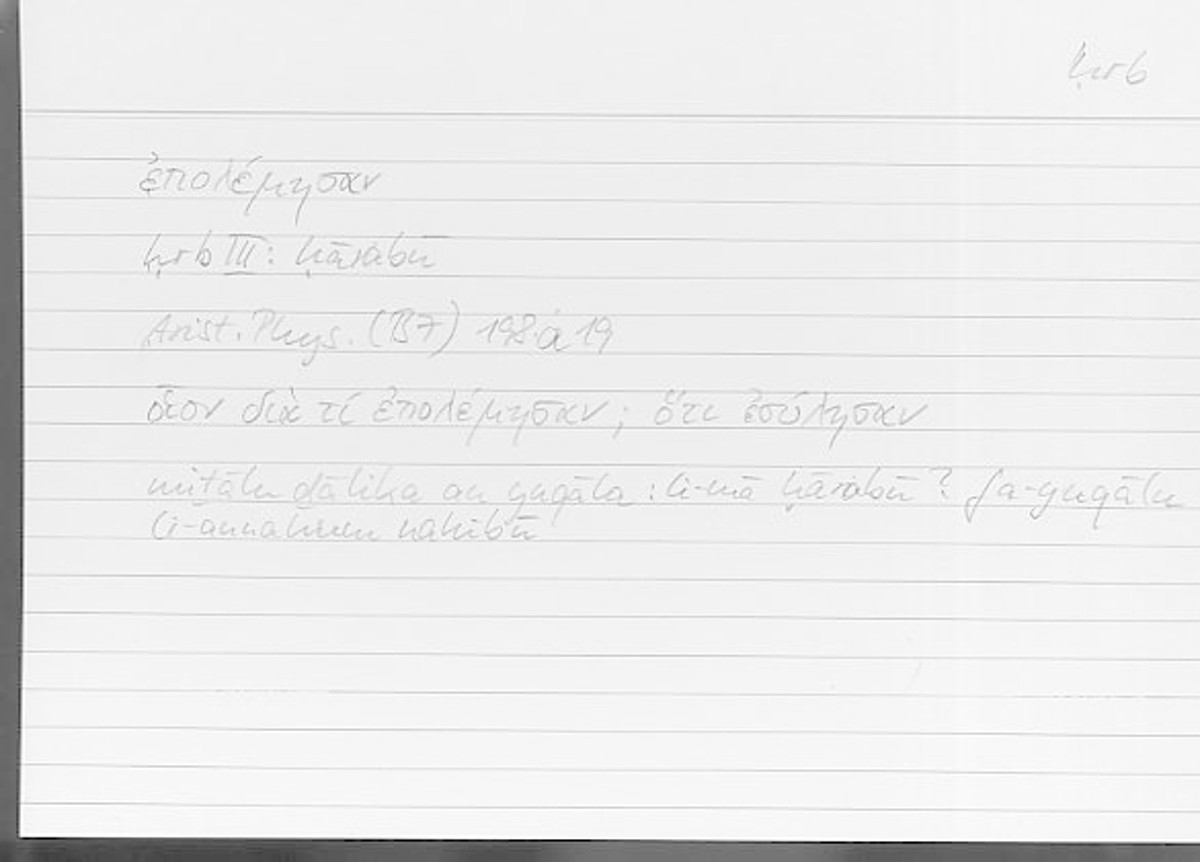 ḥrb
ἐπολέμησαν
ḥrb III: ḥārabū
Arist. Phys. (B7) 198 a 19
οἷον διὰ τί ἐπολέμησαν; ὅτι ἐσύλησαν
miṯālu ḏālika an yuqāla: li-mā ḥārabū? fa-yuqālu
li-annahum nahibū